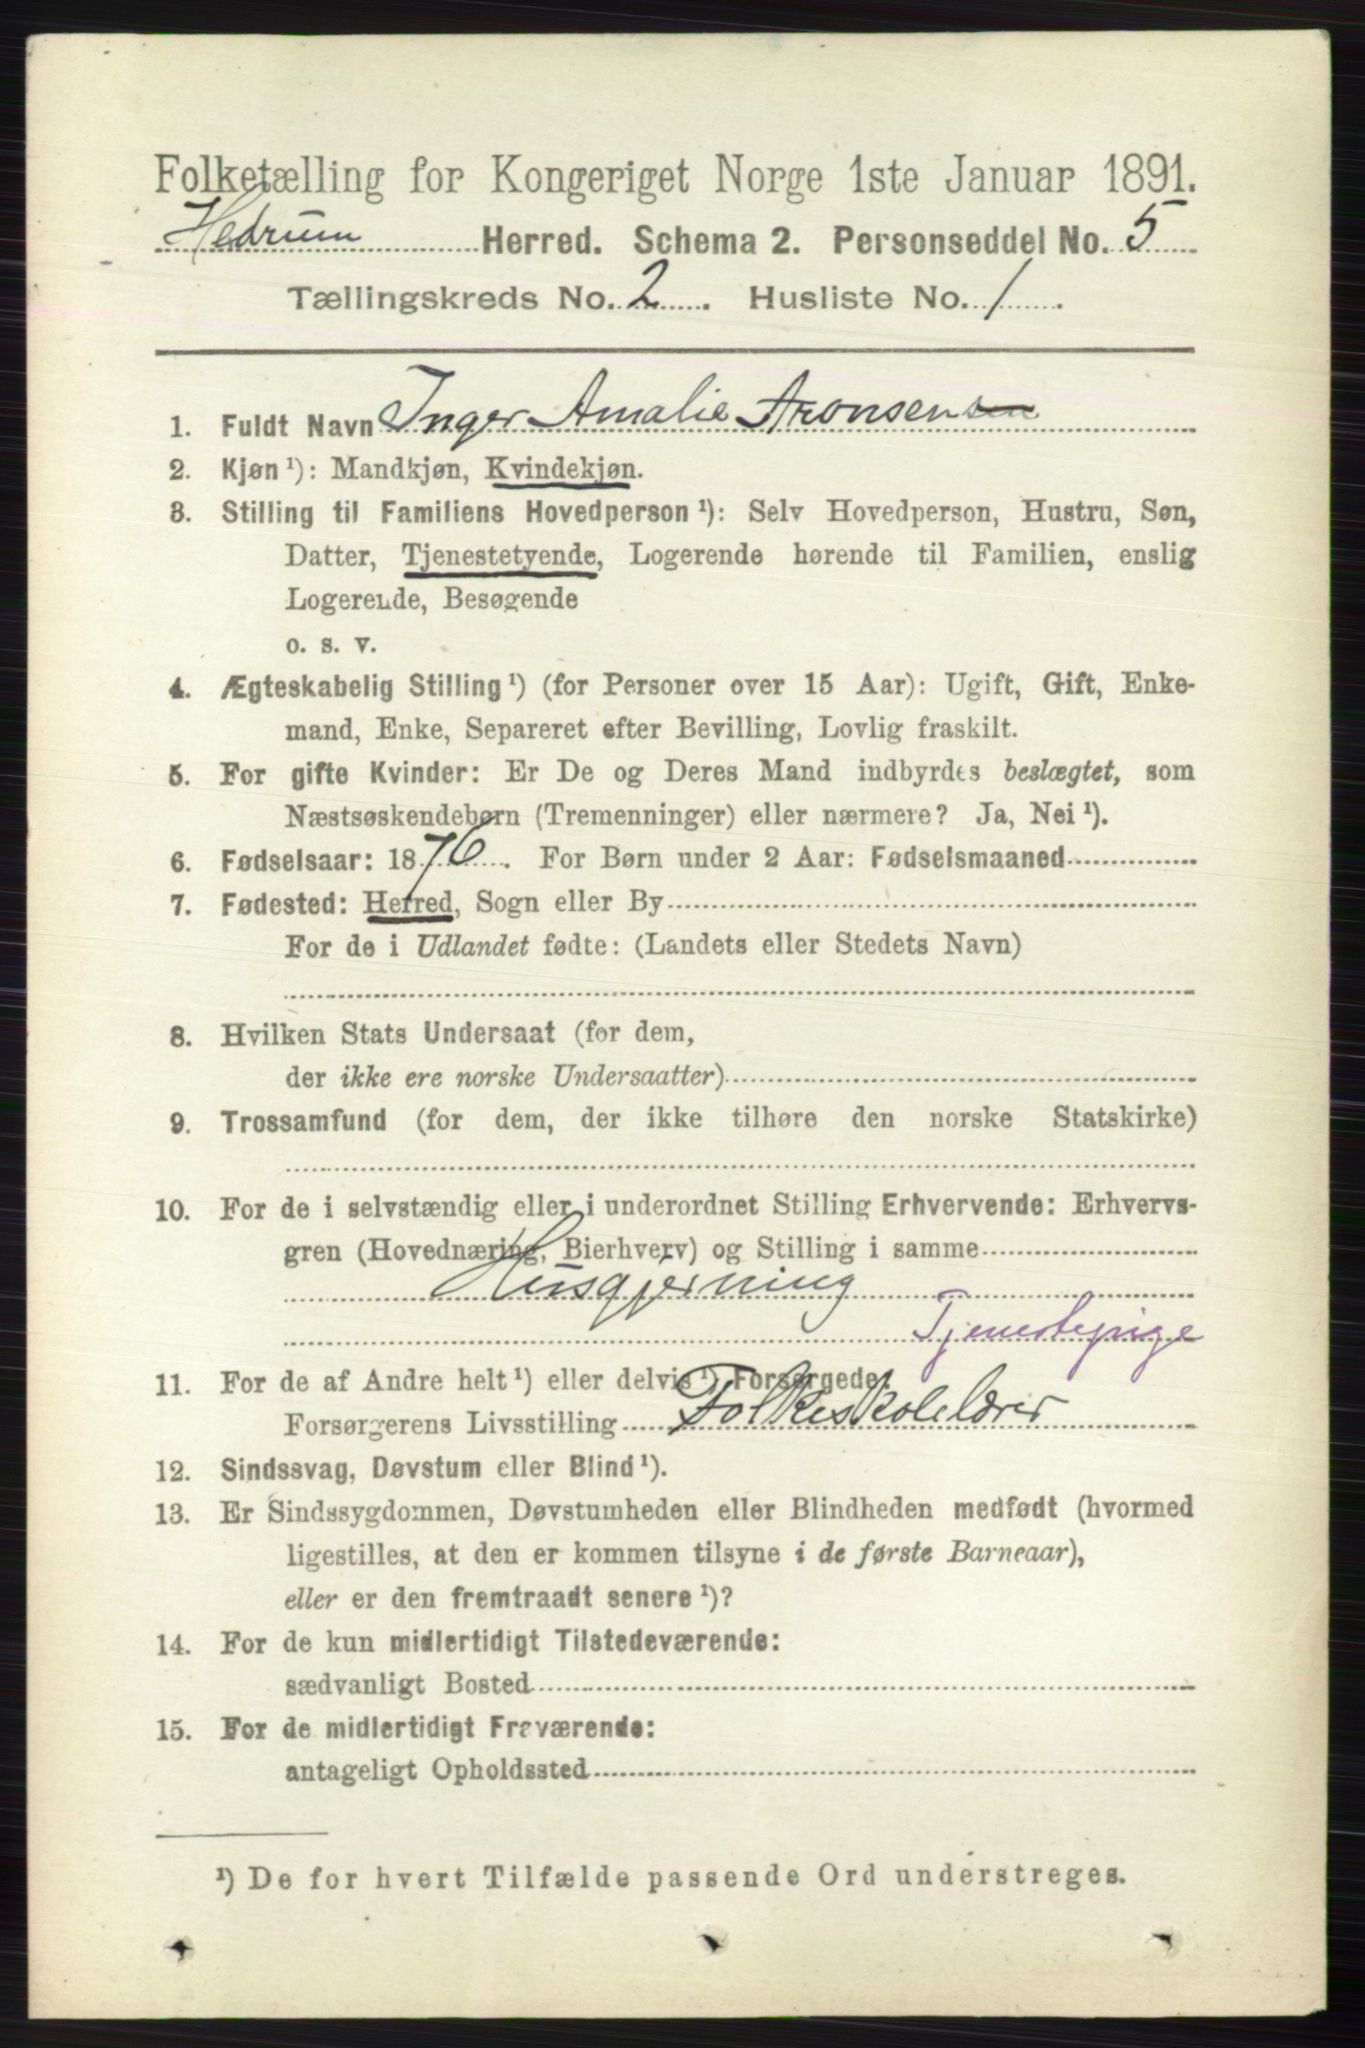 Folketælling for Kongeriget Norge 1ste Januar 1891.
Hedrum Herred. Schema 2. Personseddel No. 5
Tællingskreds No. 2. Husliste No. 1.
1. Fuldt Navn Inger Amalie Aronsensen
2. Kjøn ¹): Mandkjøn, Kvindekjøn.
3. Stilling til Familiens Hovedperson ¹): Selv Hovedperson, Hustru, Søn,
Datter, Tjenestetyende, Logerende hørende til Familien, enslig
Logerende, Besøgende
o. s. v.
4. Ægteskabelig Stilling ¹) (for Personer over 15 Aar): Ugift, Gift, Enke-
mand, Enke, Separeret efter Bevilling, Lovlig fraskilt.
5. For gifte Kvinder: Er De og Deres Mand indbyrdes beslægtet, som
Næstsøskendebørn (Tremenninger) eller nærmere? Ja, Nei ¹).
6. Fødselsaar: 1876. For Børn under 2 Aar: Fødselsmaaned
7. Fødested: Herred, Sogn eller By
For de i Udlandet fødte: (Landets eller Stedets Navn)
8. Hvilken Stats Undersaat (for dem,
der ikke ere norske Undersaatter)
9. Trossamfund (for dem, der ikke tilhøre den norske Statskirke)
10. For de i selvstændig eller i underordnet Stilling Erhvervende: Erhvervs-
gren (Hovednæring, Bierhverv) og Stilling i samme
Husgjerning
Tjenestepige
11. For de af Andre helt ¹) eller delvis ¹) Forsørgede:
Forsørgerens Livsstilling Folkeskolelærer
12. Sindssvag, Døvstum eller Blind ¹).
13. Er Sindssygdommen, Døvstumheden eller Blindheden medfødt (hvormed
ligestilles, at den er kommen tilsyne i de første Barneaar),
eller er den fremtraadt senere ¹)?
14. For de kun midlertidigt Tilstedeværende:
sædvanligt Bosted
15. For de midlertidigt Fraværende:
antageligt Opholdssted
¹) De for hvert Tilfælde passende Ord understreges.